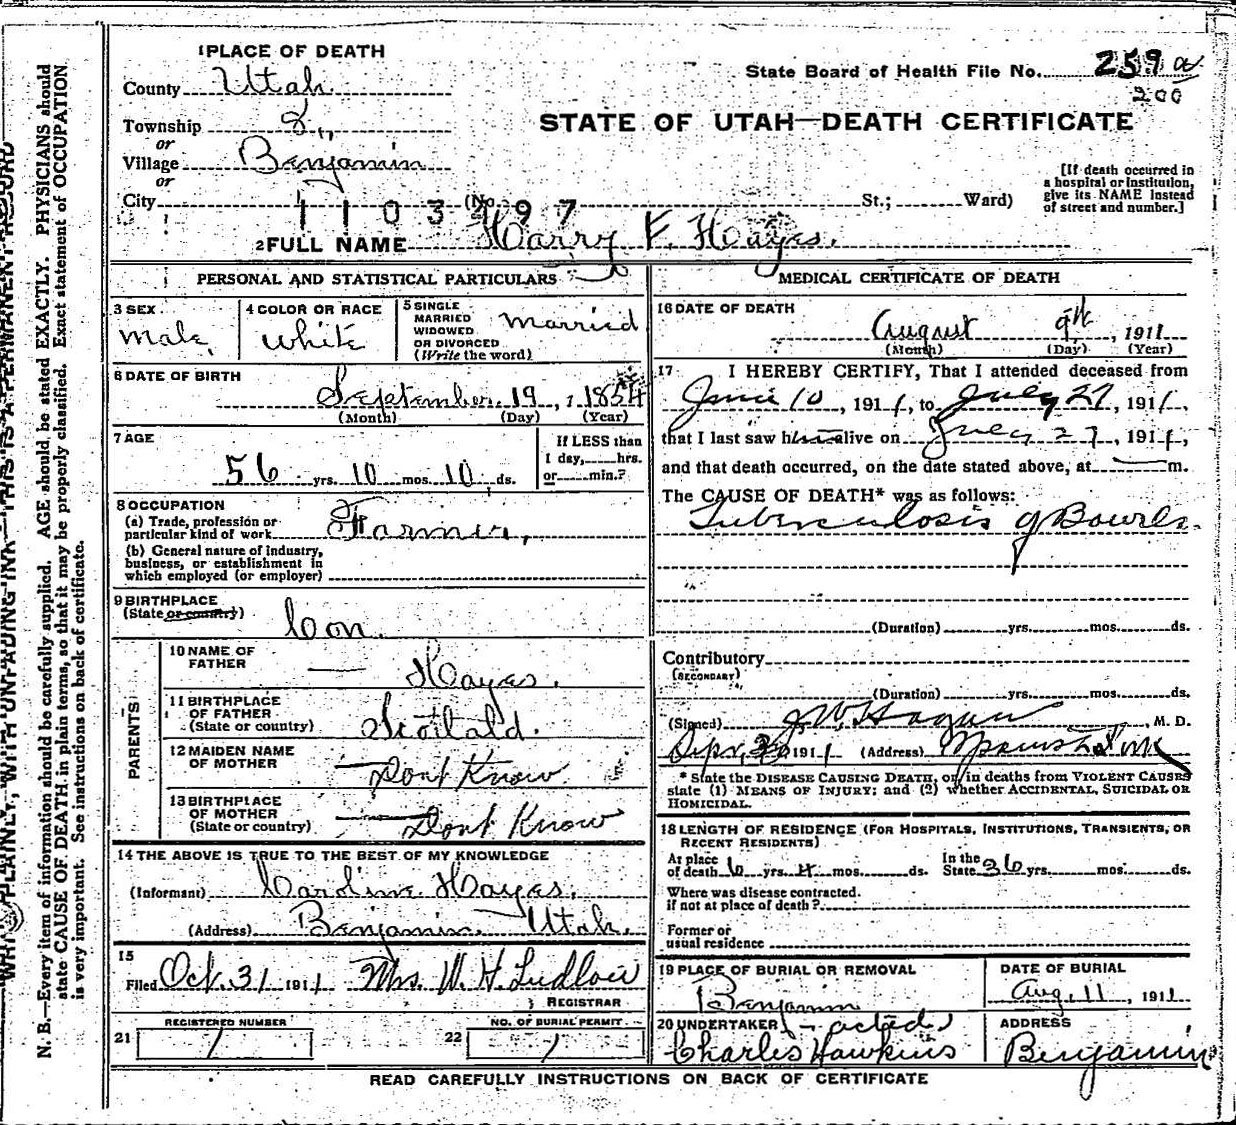 1 PLACE OF DEATH
County Utah
Township 8
or
Village Benjamin
or
City (No. St.; Ward)
State Board of Health File No. 259
200
STATE OF UTAH—DEATH CERTIFICATE
[If death occurred in
a hospital or institution,
give its NAME instead
of street and number.]
1103 97
2 FULL NAME Harry F. Hayes.
PERSONAL AND STATISTICAL PARTICULARS
3 SEX
Male,
4 COLOR OR RACE
White
5 SINGLE
MARRIED
WIDOWED
OR DIVORCED
(Write the word)
Married
6 DATE OF BIRTH
September. 19, 1854
(Month) (Day) (Year)
7 AGE
56 yrs. 10 mos. 10 ds.
If LESS than
1 day, hrs.
or min.?
8 OCCUPATION
(a) Trade, profession or
particular kind of work Farmer,
(b) General nature of industry,
business, or establishment in
which employed (or employer)
9 BIRTHPLACE
(State or country)
Con.
PARENTS
10 NAME OF
FATHER
— Hayes.
11 BIRTHPLACE
OF FATHER
(State or country)
Scotlald.
12 MAIDEN NAME
OF MOTHER
— Dont Know
13 BIRTHPLACE
OF MOTHER
(State or country)
— Dont Know
14 THE ABOVE IS TRUE TO THE BEST OF MY KNOWLEDGE
(Informant) Caroline Hayes.
(Address) Benjamin. Utah.
15
Filed Oct. 31 1911 Mrs. W. H. Ludlow
REGISTRAR
21 REGISTERED NUMBER
1
22 NO. OF BURIAL PERMIT
1
MEDICAL CERTIFICATE OF DEATH
16 DATE OF DEATH
August 9th, 1911
(Month) (Day) (Year)
17 I HEREBY CERTIFY, That I attended deceased from
June 10, 1911, to July 27, 1911,
that I last saw him alive on July 27, 1911,
and that death occurred, on the date stated above, at — m.
The CAUSE OF DEATH* was as follows:
Tuberculosis of Bowels.
(Duration) yrs. mos. ds.
Contributory
(SECONDARY)
(Duration) yrs. mos. ds.
(Signed) J. W. Hagan, M. D.
Sept, 30 1911 (Address)
* State the DISEASE CAUSING DEATH, or, in deaths from VIOLENT CAUSES
state (1) MEANS OF INJURY; and (2) whether ACCIDENTAL, SUICIDAL OR
HOMICIDAL.
18 LENGTH OF RESIDENCE (FOR HOSPITALS, INSTITUTIONS, TRANSIENTS, OR
RECENT RESIDENTS)
At place
of death 6 yrs. 4 mos. ds.
In the
State 36 yrs. mos. ds.
Where was disease contracted.
if not at place of death?
Former or
usual residence
19 PLACE OF BURIAL OR REMOVAL
Benjamin
DATE OF BURIAL
Aug. 11, 1911
20 UNDERTAKER (— acted)
Charles Hawkins
ADDRESS
Benjamin
READ CAREFULLY INSTRUCTIONS ON BACK OF CERTIFICATE
PLAINLY, WITH UNFADING INK—THIS IS A PERMANENT RECORD
N. B.—Every item of information should be carefully supplied. AGE should be stated EXACTLY. PHYSICIANS should
state CAUSE OF DEATH in plain terms, so that it may be properly classified. Exact statement of OCCUPATION
is very important. See instructions on back of certificate.